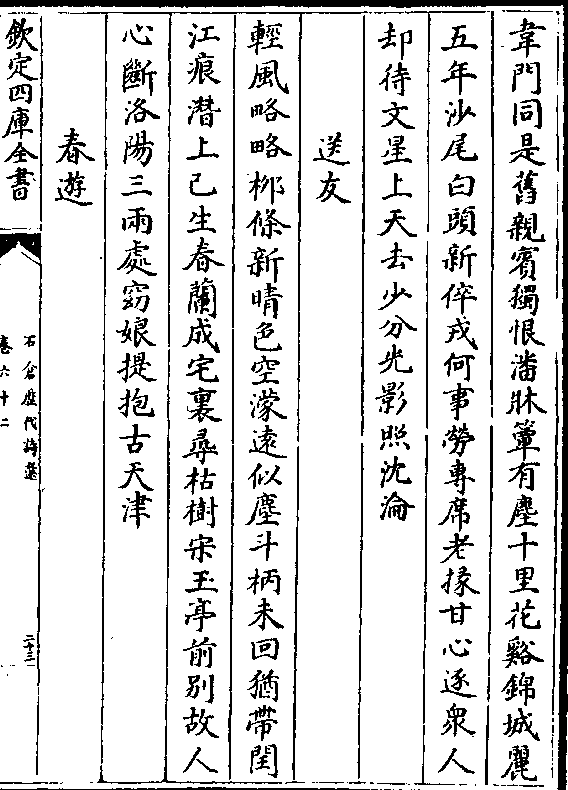 韋門同是舊親賓獨恨潘牀簟有塵十里花谿錦城麗
五年沙尾白頭新倅戎何事勞專席老掾甘心逐衆人
却待文星上天去少分光影照沈淪
送友
輕風略略栁條新晴色空濛遠似塵斗柄未回猶帶閏
江痕潛上已生春蘭成宅裏尋枯樹宋玉亭前別故人
心斷洛陽三兩處窈娘提抱古天津
春遊
欽定四庫全書
石倉歴代詩選
卷六十二
二十三